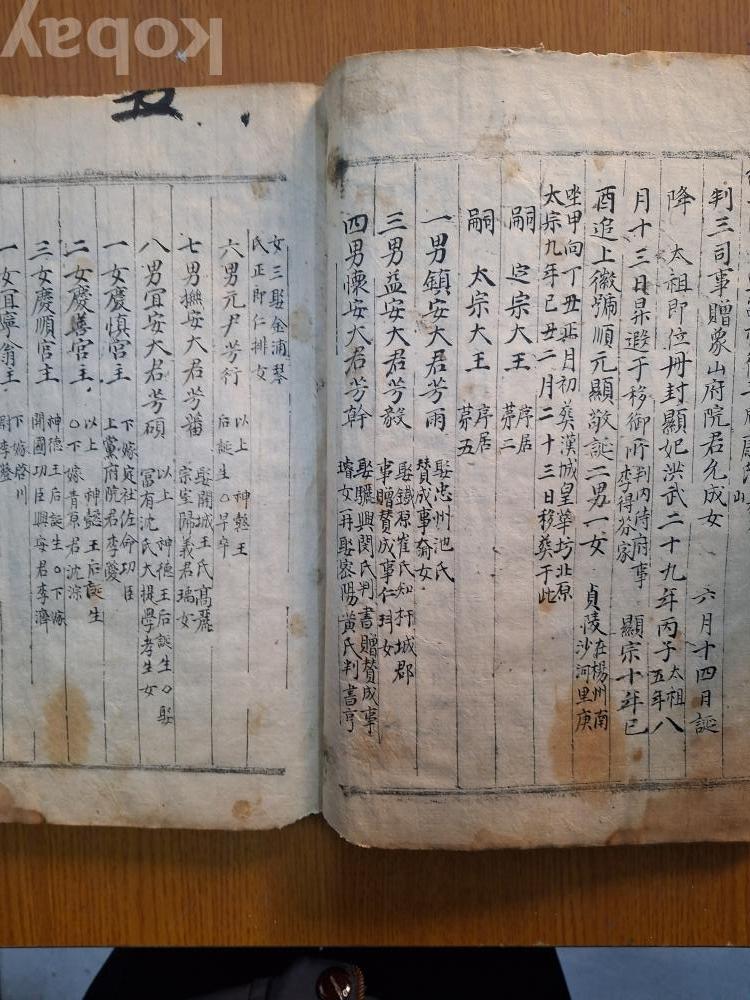 判三司事贈象山府院君允成女 六月十四日誕
降 太祖即位冊封顯妃洪武二十九年丙子 太祖五年 八
月十三日昇遐于移御所 判內侍府事李得芬家 顯宗十年己
酉追上徽號順元顯敬誕二男一女 貞陵 在楊州南沙河里庚
坐甲向丁丑正月初葬漢城皇華坊北原
太宗九年己丑二月二十三日移葬于此
嗣 定宗大王 序居茅二
嗣 太宗大王 序居茅五
一男鎮安大君芳雨 娶忠州池氏贊成事奫女
三男益安大君芳毅 娶鐵原崔氏知杆城郡事贈贊成事仁㺶女
四男懷安大君芳幹 娶驪興閔氏判書贈贊成事璿女再娶密陽黃氏判書亨
女三娶金浦琴
氏正郎仁排女
六男元尹芳衍 以上 神懿王后誕生○早卒
七男撫安大君芳蕃 娶開城王氏高麗宗室歸義君瑀女
八男宜安大君芳碩 以上 神德王后誕生○娶富有沈氏大提學孝生女
一女慶慎宮主 下嫁定社佐命功臣上黨府院君李薆
二女慶善宮主 以上 神懿王后誕生○下嫁青原君沈淙
三女慶順宮主 神德王后誕生○下嫁開國功臣興安君李濟
一女宜寧翁主 下嫁啓川尉李
kobay